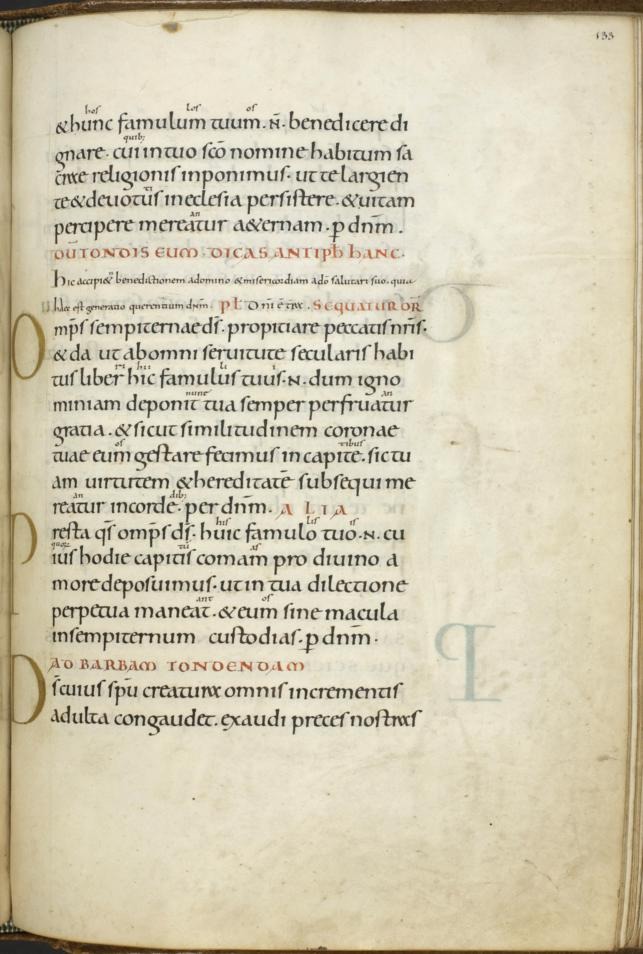 133
hos los os
& hunc famulum tuum. N̄. benedicere di
quib;
gnare. cui in tuo sc̄o nomine habitum sa
crae religionis inponimus. ut te largien
te & deuotus in eclesia persistere. & uitam
an
percipere mereatur a&ernam. p dnm̄.
DŪ TONDIS EUM DICAS ANTIPħ hANC.
hic accipi& benedictionem a domino & misericordiam a dō salutari suo. quia
haec est generatio querentium dnm̄. pł. Dn̄i ē trae. SEQUATUR OR̄
Omp̄s sempiternae ds̄. propitiare peccatis nr̄is.
& da ut ab omni seruitute secularis habi
ri hii li i
tus liber hic famulus tuus. N. dum igno
nunt an
miniam deponit tua semper perfruatur
gratia. & sicut similitudinem coronae
os tibus
tuae eum gestare fecimus in capite. sic tu
am uirtutem & hereditatē subsequi me
an dib;
reatur in corde. per dnm̄. ALIA
his lis is
Presta qs̄ omp̄s ds̄. huic famulo tuo. N. cu
quor; tū as
ius hodie capitis comam pro diuino a
more deposuimus. ut in tua dilectione
ant os
perpetua maneat. & eum sine macula
in sempiternum custodias. p dnm̄.
AD BARBAM TONDENDAM
Ds̄ cuius sp̄u creatura omnis incrementis
adulta congaudet. exaudi preces nostras